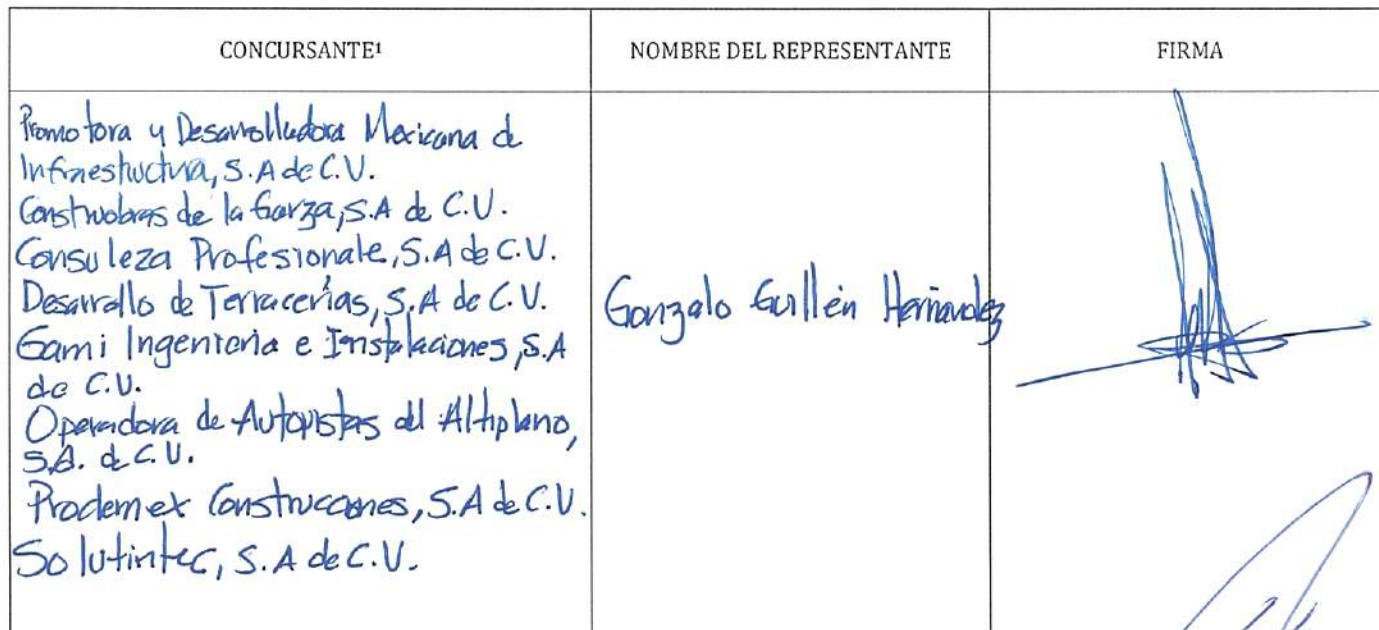 CONCURSANTE¹ NOMBRE DEL REPRESENTANTE FIRMA
Promotora y Desarrolladora Mexicana de
Infraestructura, S.A de C.V.
Construobras de la Garza, S.A de C.V.
Consuleza Profesionale, S.A de C.V.
Desarrollo de Terracerías, S.A de C.V.
Gami Ingeniería e Instalaciones, S.A
de C.V.
Operadora de Autopistas del Altiplano,
S.A. de C.V.
Prodemex Construcciones, S.A de C.V.
Solutintec, S.A de C.V.
Gonzalo Guillén Hernández